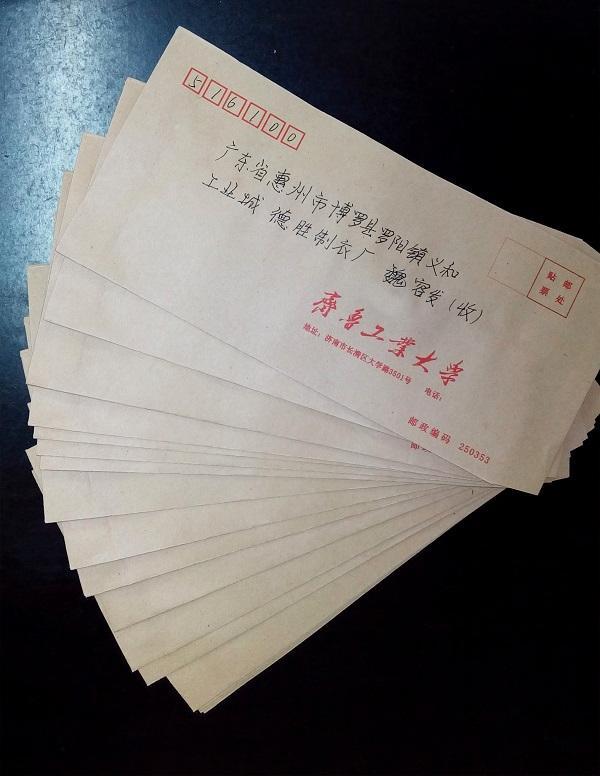 516100
广东省惠州市博罗县罗阳镇义和
工业城 德胜制衣厂 魏容发（收）
贴 邮
票 处
齐鲁工业大学
地址：济南市长清区大学路3501号 电话：
邮政编码 250353